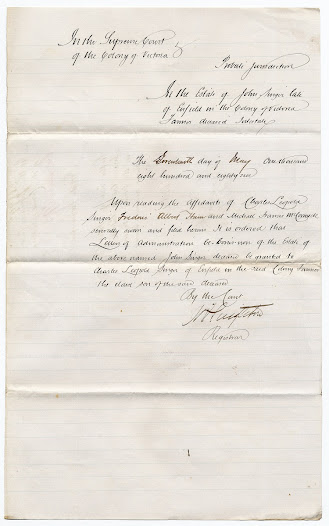 In the Supreme Court
of the Colony of Victoria
Probate Jurisdiction
In the Estate of John Singer late
of Enfield in the Colony of Victoria
Farmer deceased Intestate
The Seventeenth day of May One thousand
eight hundred and eighty
Upon reading the affidavits of Charles Leopold
Singer Frederic Alfred and Michael Francis
severally sworn and filed herein It is ordered that
Letters of Administration of the Estate of
the above named John Singer deceased be granted to
Charles Leopold Singer of Enfield in the said Colony Farmer
the eldest son of the said deceased
By the Court
Registrar